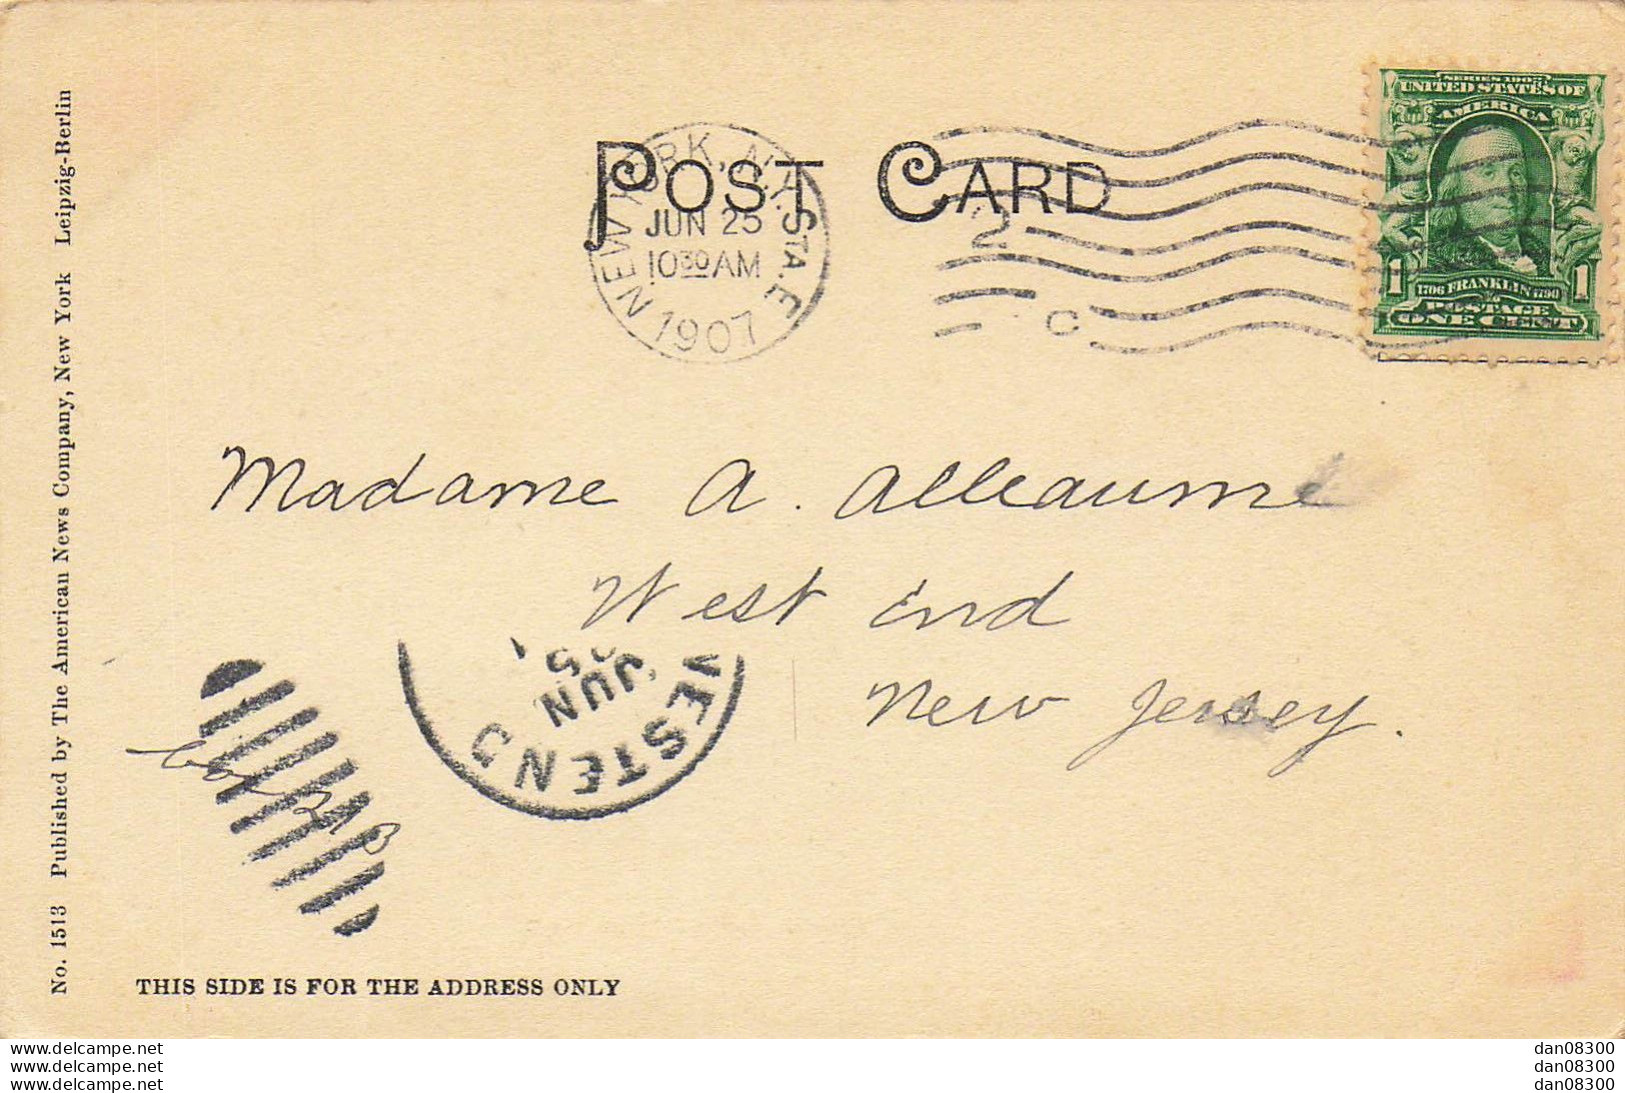 POST CARD
NEW YORK, N.Y. STA. E
JUN 25
10 30 AM
1907
2
C
SERIES 1902
UNITED STATES OF
AMERICA
1 1
1706 FRANKLIN 1790
POSTAGE
ONE CENT
Madame A. Alleaume
West End
New Jersey.
WEST END
JUN
25
Box 213
No. 1513 Published by The American News Company, New York Leipzig-Berlin
THIS SIDE IS FOR THE ADDRESS ONLY
www.delcampe.net
www.delcampe.net
www.delcampe.net
dan08300
dan08300
dan08300